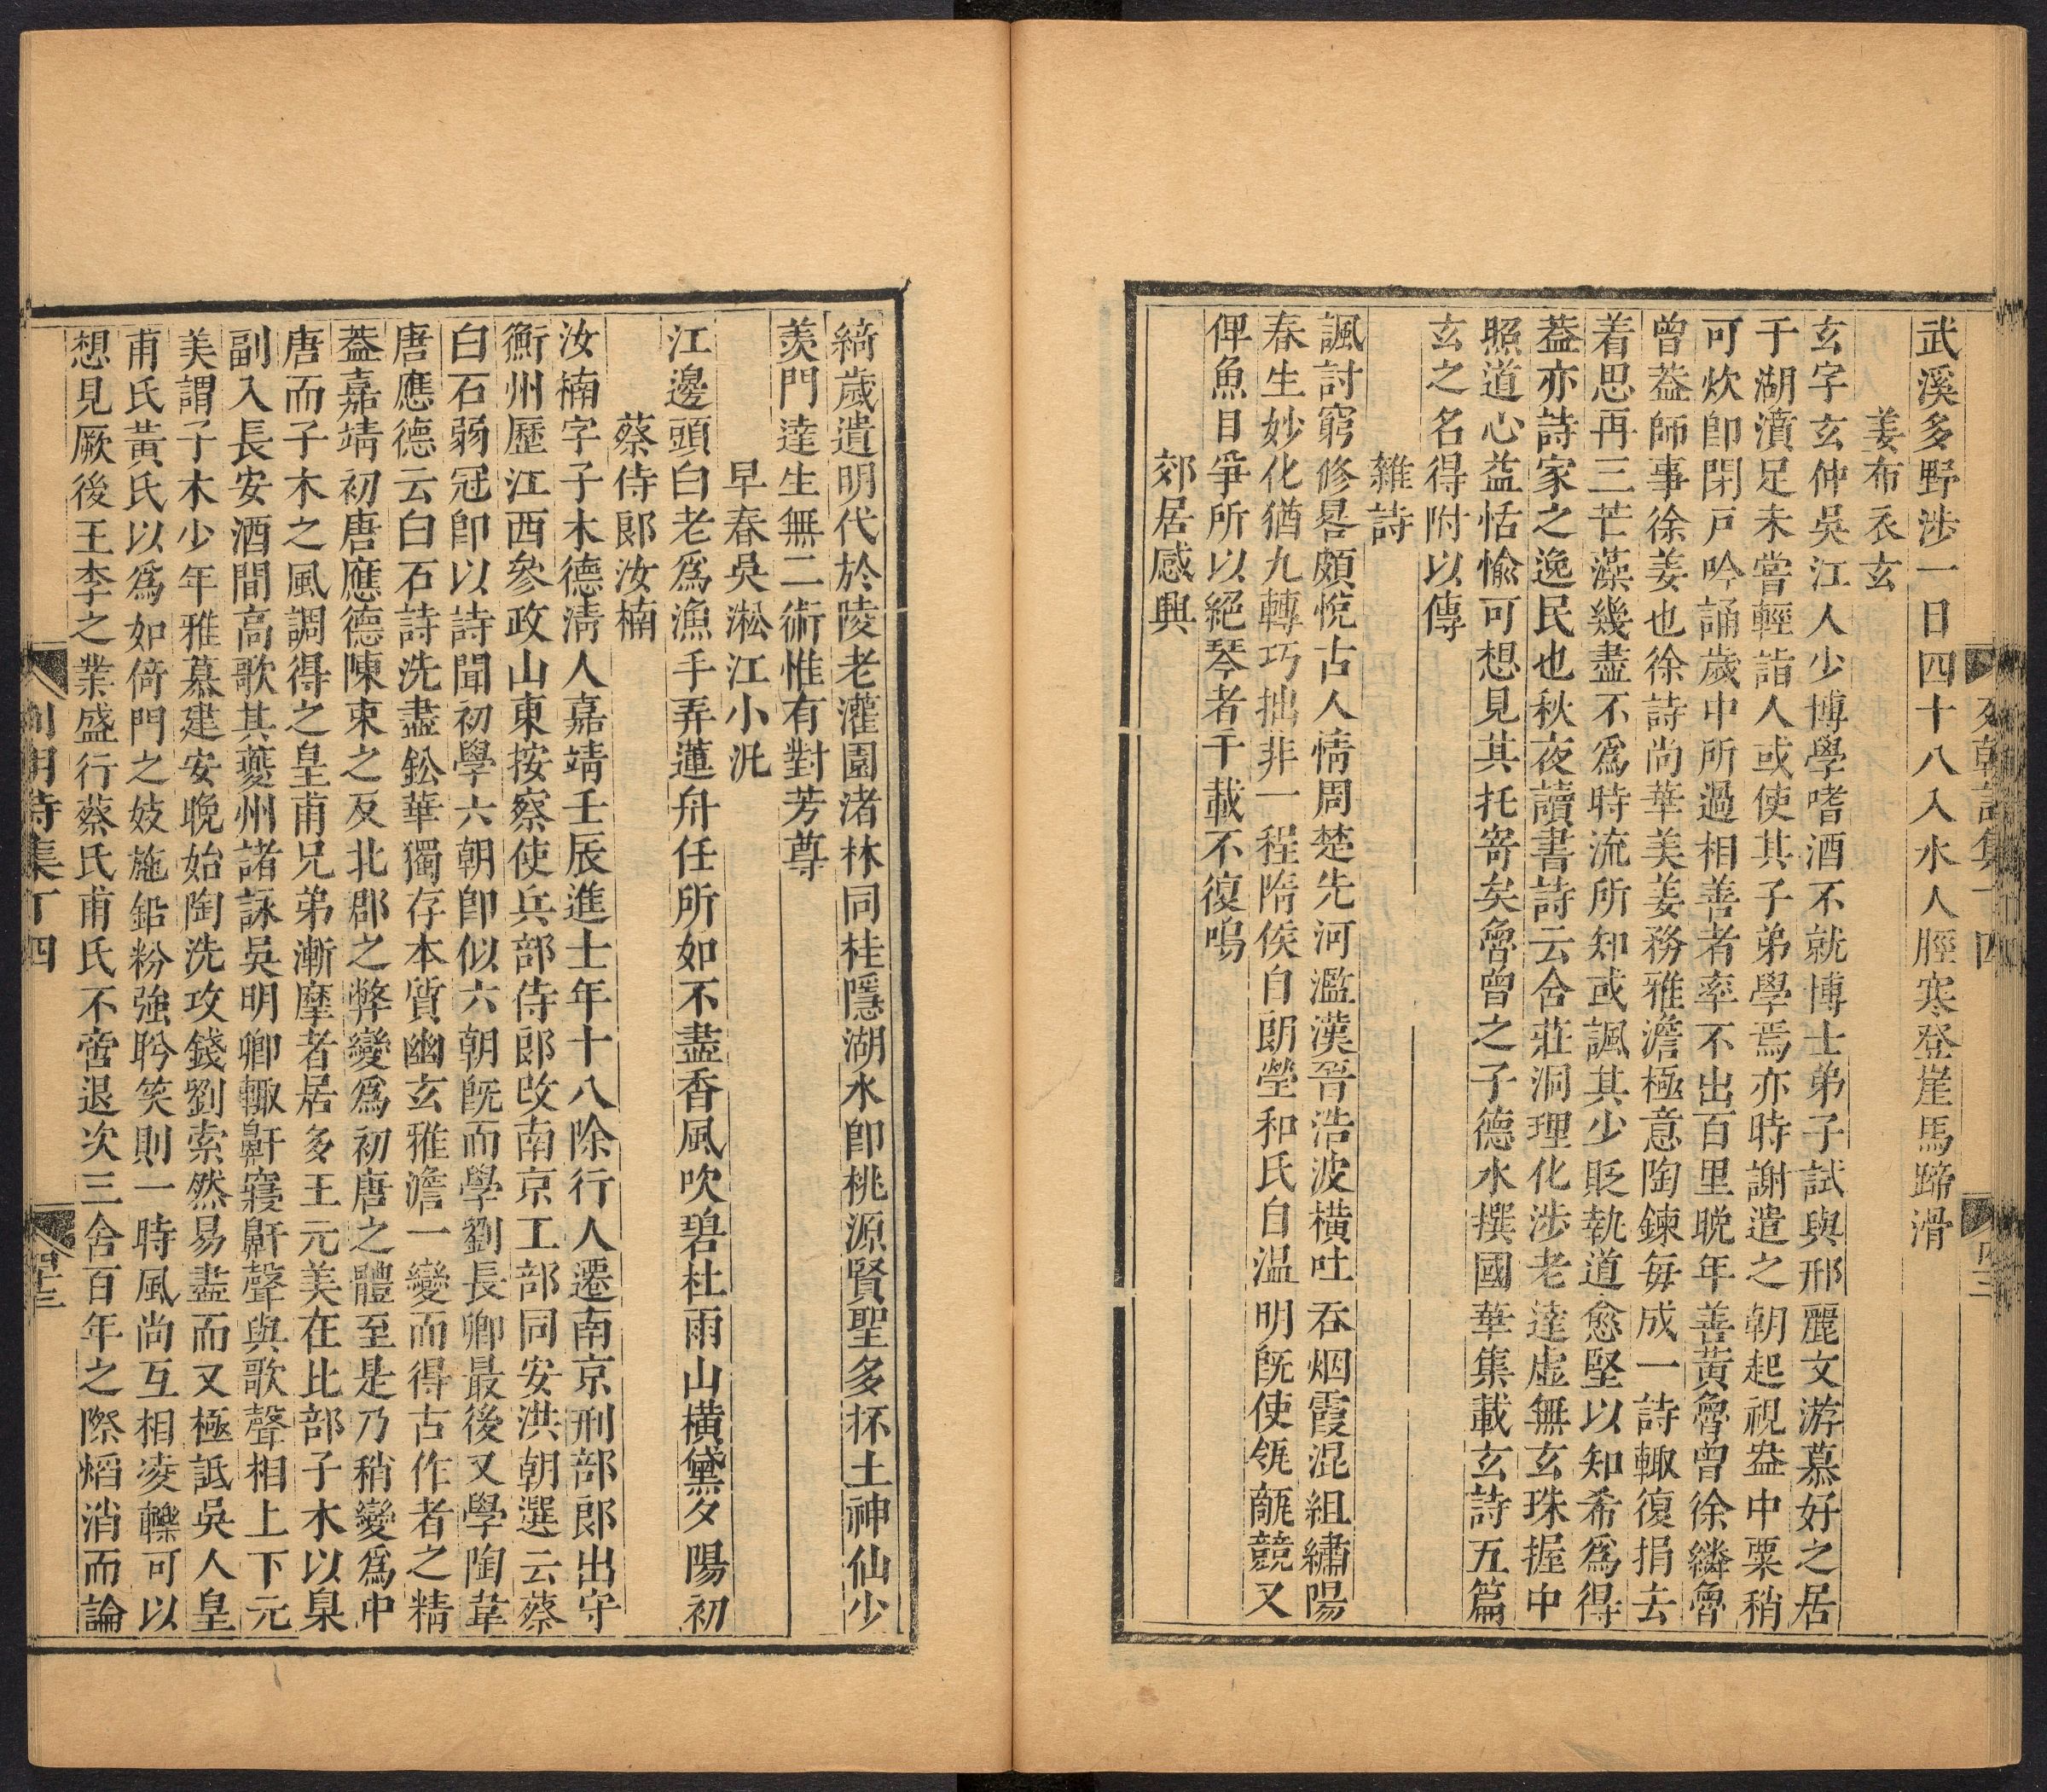 武溪多野涉一日四十八入水人脛寒登崖馬蹄滑
姜布衣玄
玄字玄仲吳江人少博學嗜酒不就博士弟子試與邢麗文游慕好之居
于湖濆足未嘗輕詣人或使其子弟學焉亦時謝遣之朝起視盎中粟稍
可炊即閉戸吟誦歲中所過相善者率不出百里晩年善黃魯曾徐縉魯
曾葢師事徐姜也徐詩尚華美姜務雅澹極意陶鍊每成一詩輙復捐去
着思再三芒藻幾盡不爲時流所知或諷其少貶執道愈堅以知希爲得
葢亦詩家之逸民也秋夜讀書詩云含莊洞理化涉老達虛無玄珠握中
照道心益恬愉可想見其托寄矣魯曾之子德水撰國華集載玄詩五篇
玄之名得附以傳
雜詩
諷討窮修晷頗悅古人情周楚先河濫漢晉浩波横吐吞烟霞混組繡陽
春生妙化猶九轉巧拙非一程隋侯自朗瑩和氏白温明旣使瓴甋競又
俾魚目爭所以絕琴者千載不復鳴
郊居感興
列朝詩集丁四
四十三
綺歲遺明代於陵老灌園渚林同桂隱湖水即桃源賢聖多抔土神仙少
羨門達生無二術惟有對芳尊
早春吳淞江小汎
江邊頭白老爲漁手弄蓮舟任所如不盡香風吹碧杜雨山横黛夕陽初
蔡侍郞汝楠
汝楠字子木德淸人嘉靖壬辰進士年十八除行人遷南京刑部郞出守
衡州歷江西參政山東按察使兵部侍郞改南京工部同安洪朝選云蔡
白石弱冠卽以詩聞初學六朝卽似六朝旣而學劉長卿最後又學陶韋
唐應德云白石詩洗盡鈆華獨存本質幽玄雅澹一變而得古作者之精
葢嘉靖初唐應德陳束之反北郡之弊變爲初唐之體至是乃稍變爲中
唐而子木之風調得之皇甫兄弟漸摩者居多王元美在比部子木以臬
副入長安酒間高歌其夔州諸詠吳明卿輙鼾寢鼾聲與歌聲相上下元
美謂子木少年雅慕建安晩始陶洗攻錢劉索然易盡而又極詆吳人皇
甫氏黃氏以爲如倚門之妓施鉛粉強聆笑則一時風尚互相凌轢可以
想見厥後王李之業盛行蔡氏甫氏不啻退次三舍百年之際熖消而論
列朝詩集丁四
四十三